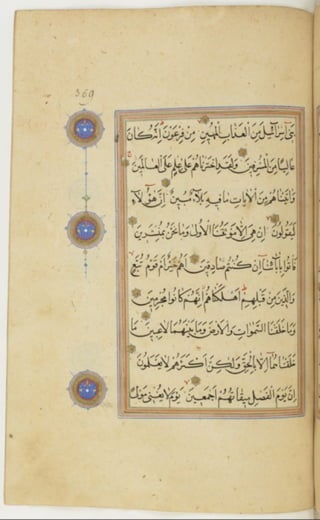 369
بَنِى اِسْرَآئِيلَ مِنَ الْعَذَابِ الْمُهِينِ مِنْ فِرْعَوْنَ اِنَّهُ كَانَ
عَالِيًا مِنَ الْمُسْرِفِينَ وَلَقَدِ اخْتَرْنَاهُمْ عَلَى عِلْمٍ عَلَى الْعَالَمِينَ
وَاٰتَيْنَاهُمْ مِنَ الْاٰيَاتِ مَا فِيهِ بَلَاءٌ مُبِينٌ اِنَّ هٰؤُلَاءِ
لَيَقُولُونَ اِنْ هِىَ اِلَّا مَوْتَتُنَا الْاُولَى وَمَا نَحْنُ بِمُنْشَرِينَ
فَاْتُوا بِاٰبَائِنَا اِنْ كُنْتُمْ صَادِقِينَ اَهُمْ خَيْرٌ اَمْ قَوْمُ تُبَّعٍ
وَالَّذِينَ مِنْ قَبْلِهِمْ اَهْلَكْنَاهُمْ اِنَّهُمْ كَانُوا مُجْرِمِينَ
وَمَا خَلَقْنَا السَّمٰوَاتِ وَالْاَرْضَ وَمَا بَيْنَهُمَا لَاعِبِينَ مَا
خَلَقْنَاهُمَا اِلَّا بِالْحَقِّ وَلٰكِنَّ اَكْثَرَهُمْ لَا يَعْلَمُونَ
اِنَّ يَوْمَ الْفَصْلِ مِيقَاتُهُمْ اَجْمَعِينَ يَوْمَ لَا يُغْنِى مَوْلًى